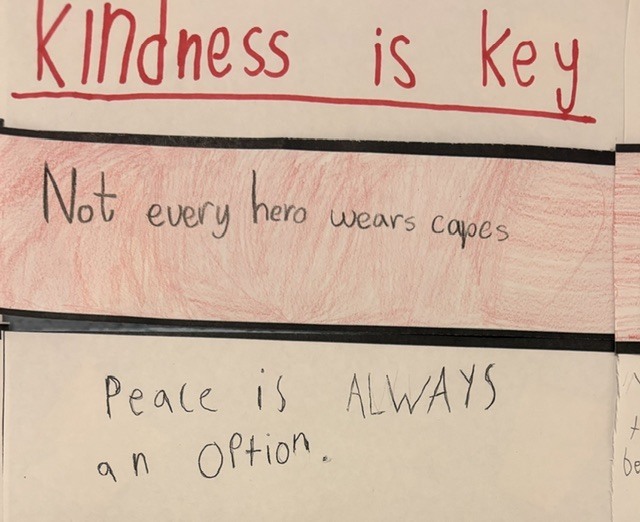 Kindness is key
Not every hero wears capes
Peace is ALWAYS
an option.
be